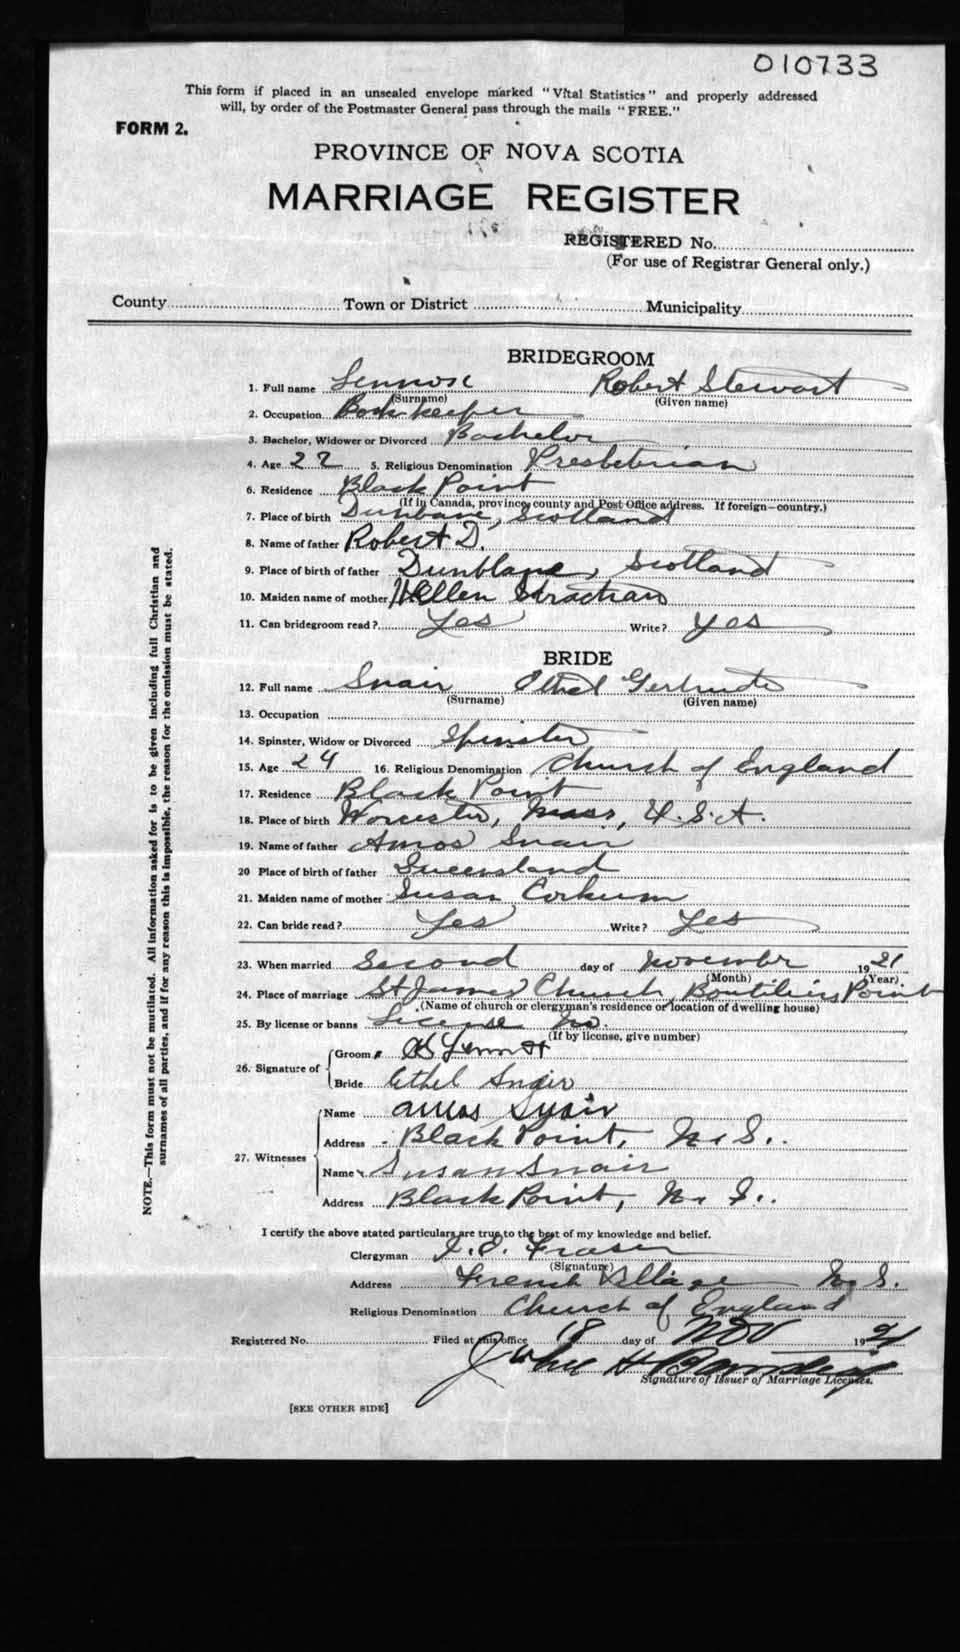 010733
This form if placed in an unsealed envelope marked "Vital Statistics" and properly addressed
will, by order of the Postmaster General pass through the mails "FREE."
FORM 2.
PROVINCE OF NOVA SCOTIA
MARRIAGE REGISTER
REGISTERED No.
(For use of Registrar General only.)
County Town or District Municipality
BRIDEGROOM
1. Full name Lennox Robert Stewart
(Surname) (Given name)
2. Occupation Bookkeeper
3. Bachelor, Widower or Divorced Bachelor
4. Age 22 5. Religious Denomination Presbeterian
6. Residence Black Point
(If in Canada, province, county and Post Office address. If foreign—country.)
7. Place of birth Dunbane, Scotland
8. Name of father Robert D.
9. Place of birth of father Dunblane, Scotland
10. Maiden name of mother Hellen Strachan
11. Can bridegroom read? Yes Write? Yes
BRIDE
12. Full name Snair Ethel Gertrude
(Surname) (Given name)
13. Occupation
14. Spinster, Widow or Divorced Spinster
15. Age 24 16. Religious Denomination Church of England
17. Residence Black Point
18. Place of birth Worcester, Mass, U.S.A.
19. Name of father Amos Snair
20 Place of birth of father Queensland
21. Maiden name of mother Susan Corkum
22. Can bride read? Yes Write? Yes
23. When married Second day of November 1921
(Month) (Year)
24. Place of marriage St James Church, Boutiliers Point
(Name of church or clergyman's residence or location of dwelling house)
25. By license or banns License No.
(If by license, give number)
26. Signature of
Groom
Bride Ethel Snair
27. Witnesses
Name Amos Snair
Address Black Point, N.S.
Name Susan Snair
Address Black Point, N.S.
I certify the above stated particulars are true to the best of my knowledge and belief.
Clergyman Fraser
(Signature)
Address French Village N.S.
Religious Denomination Church of England
Registered No. Filed at this office 18 day of Nov 1921
John H
Signature of Issuer of Marriage Licenses.
[SEE OTHER SIDE]
NOTE.—This form must not be mutilated. All information asked for is to be given including full Christian and
surnames of all parties, and if for any reason this is impossible, the reason for the omission must be stated.